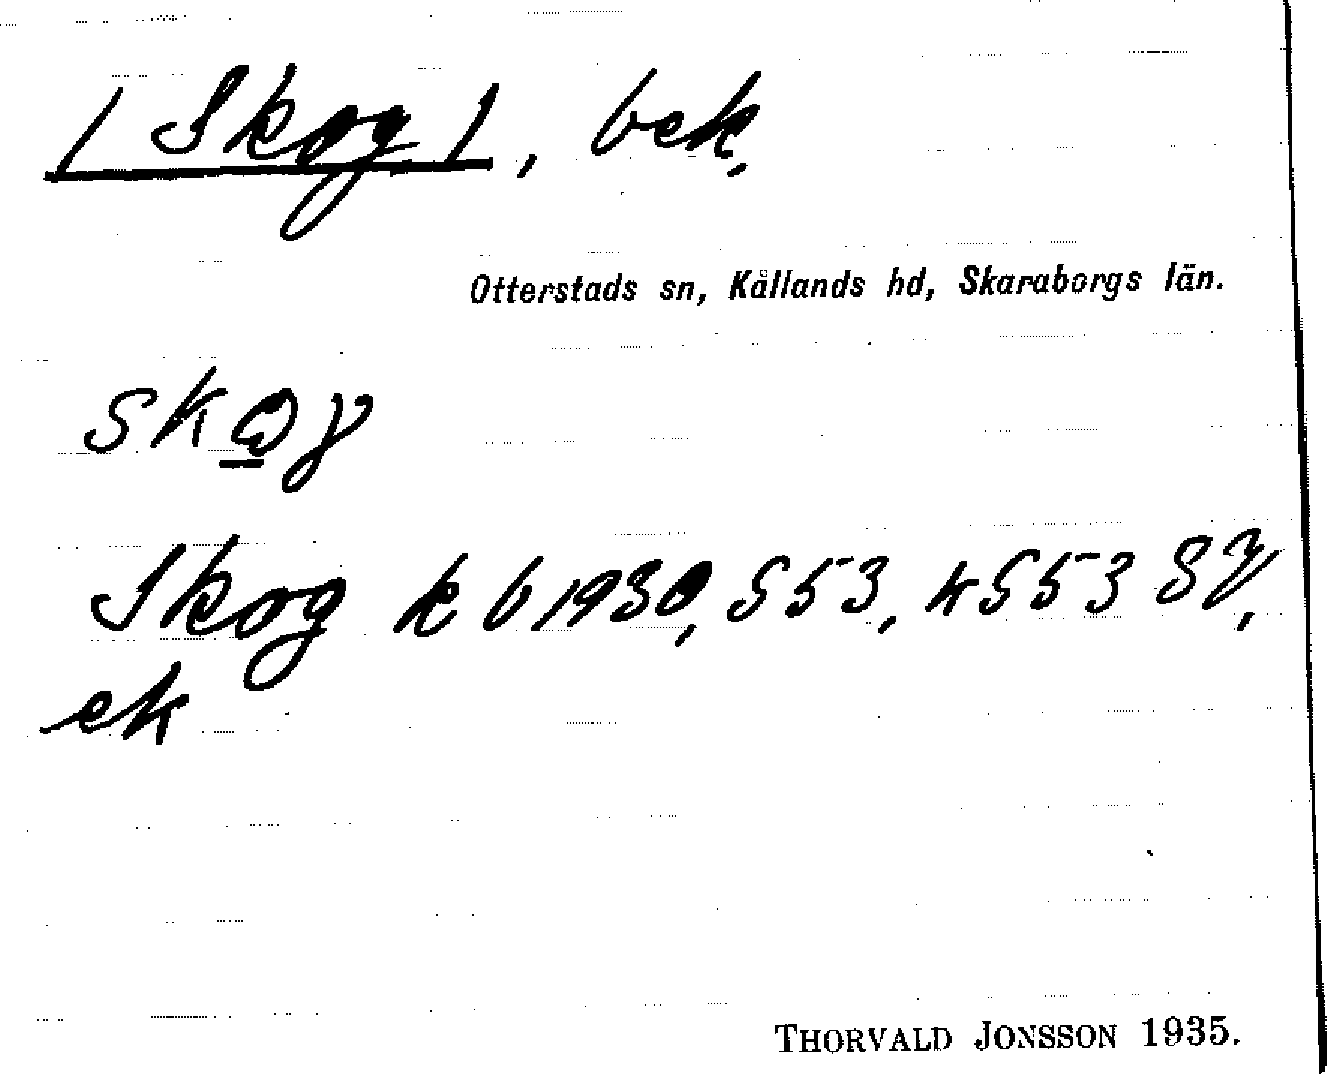 (Skog), bek.
Otterstads sn, Kållands hd, Skaraborgs län.
skoγ
Skog k b 1930, S 53, 4 S 53 SV,
ek
THORVALD JONSSON 1935.